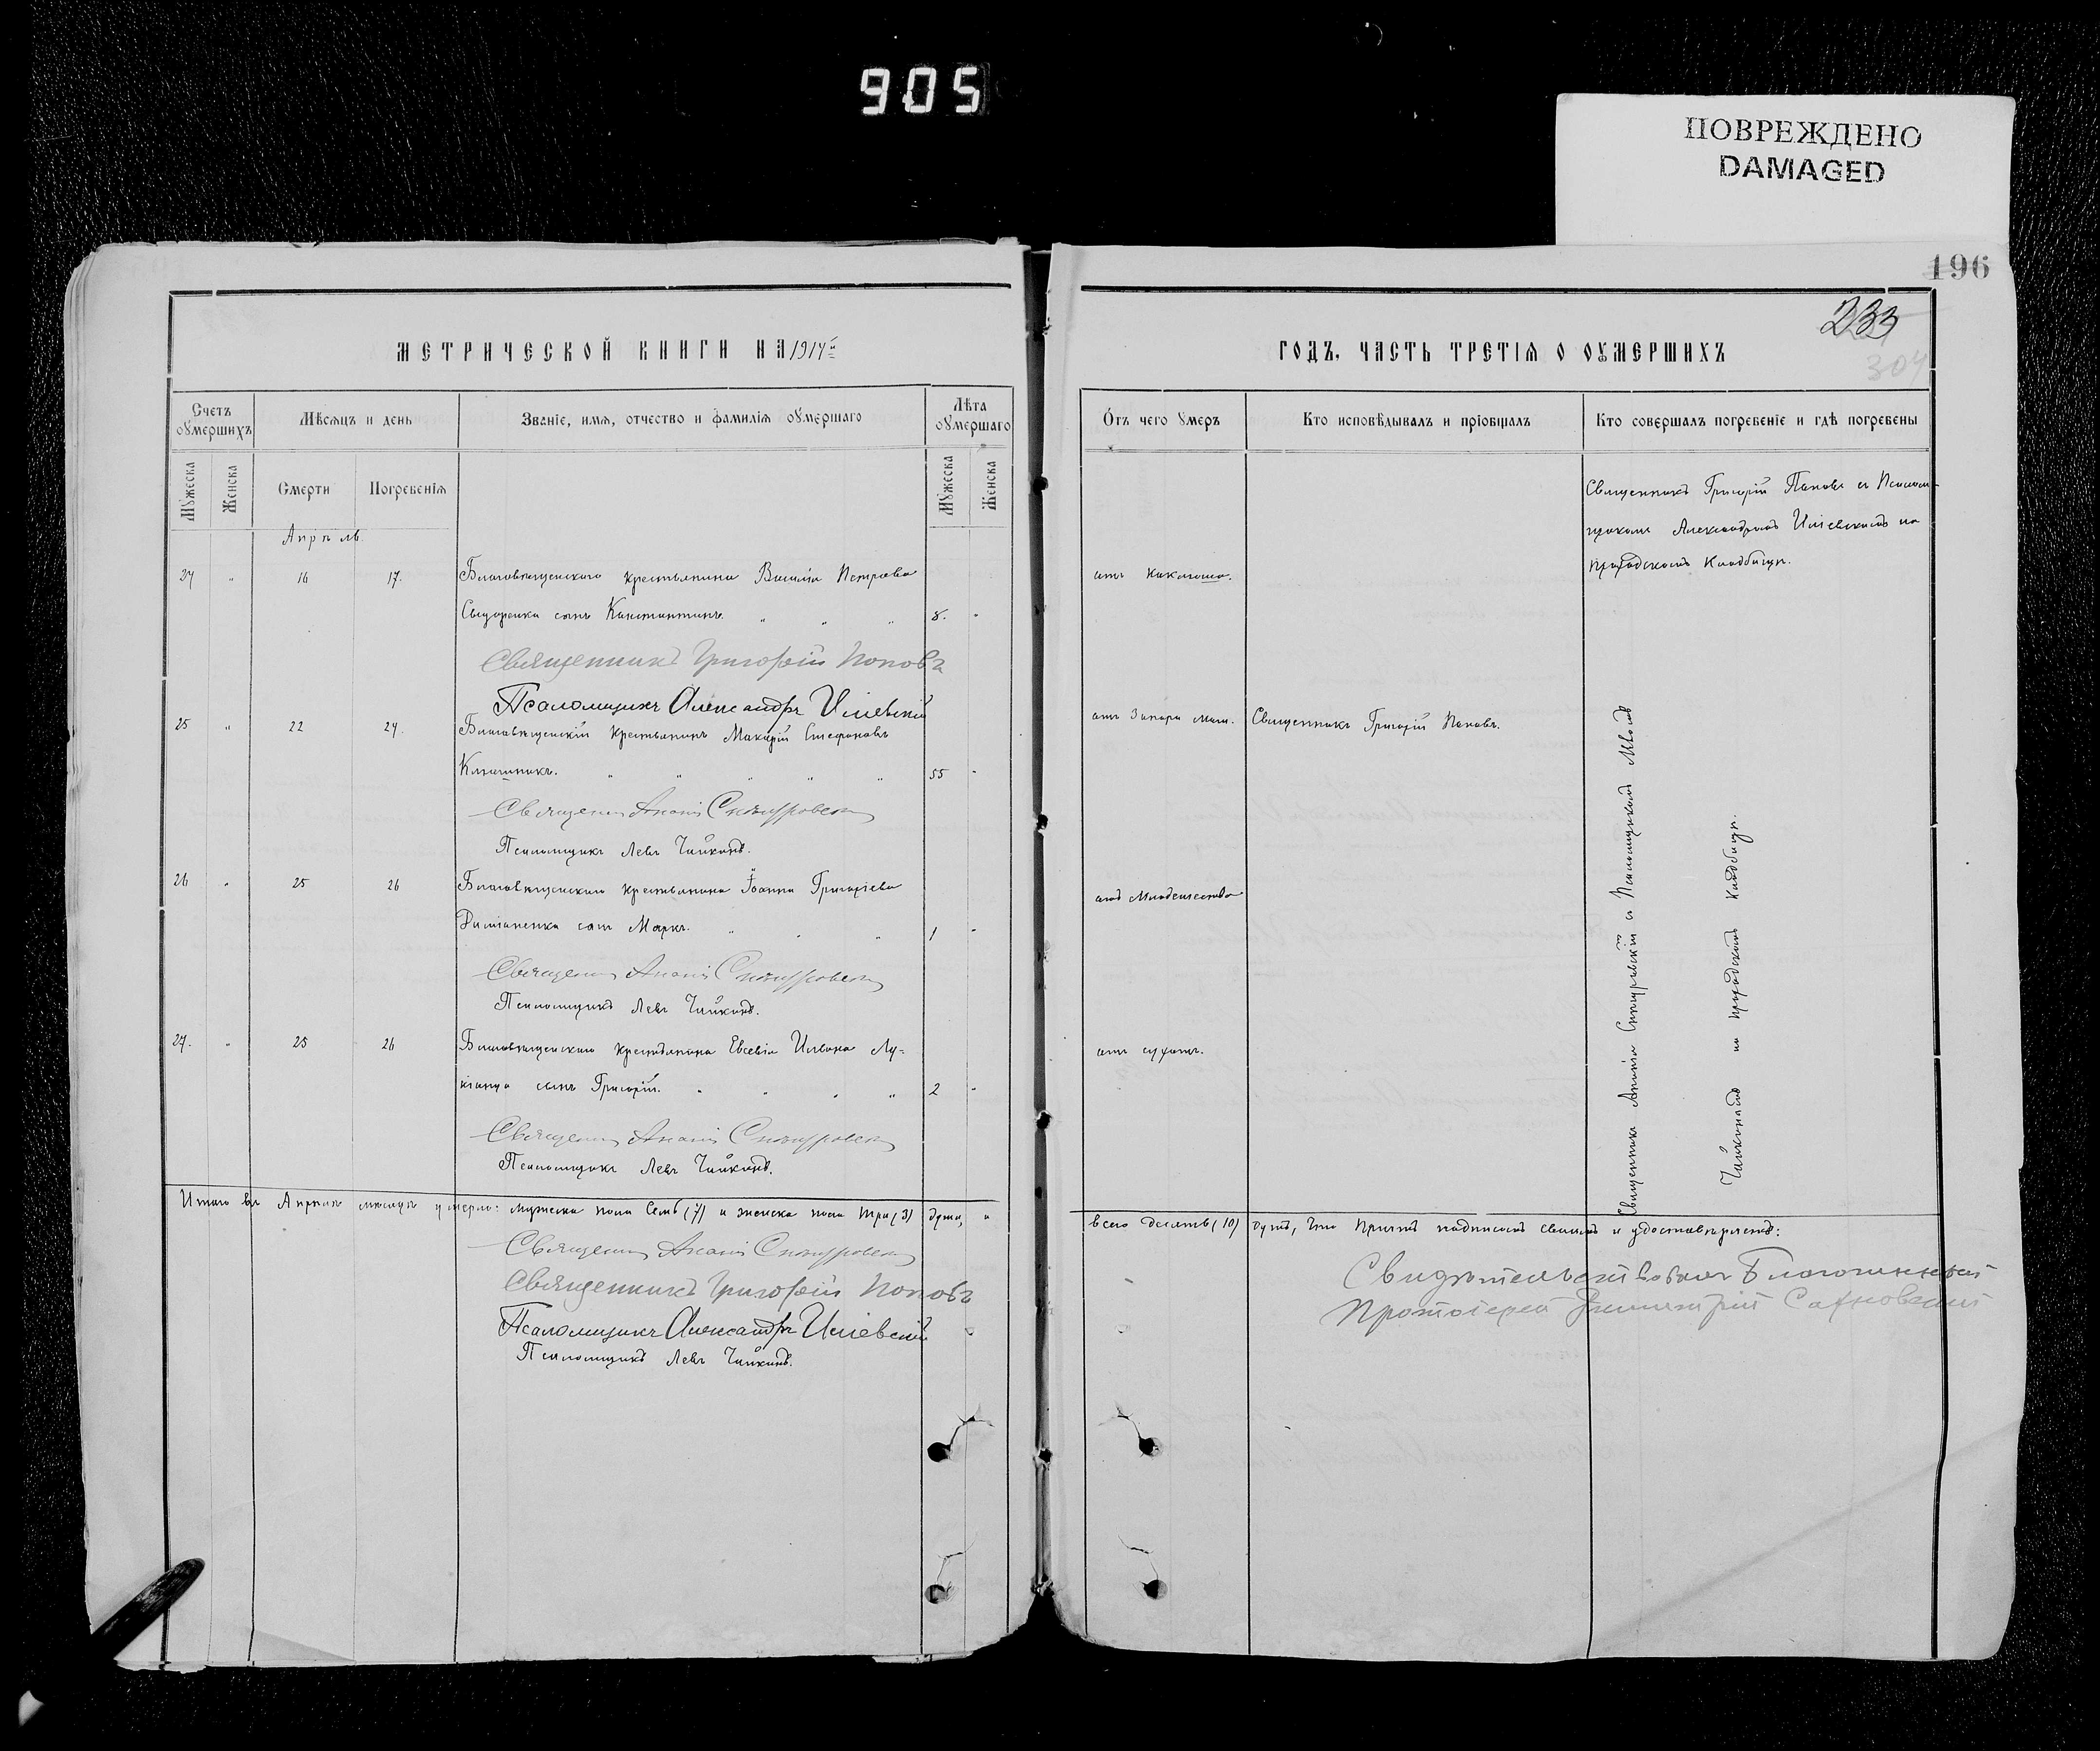 905
ПОВРЕЖДЕНО
DAMAGED
196
233
304
МЕТРИЧЕСКОЙ КНИГИ НА 1914й
Счетъ оумершихъ
Мѣсяцъ и день
Званіе, имя, отчество и фамилія оумершаго
Лѣта оумершаго
Мужеска
Женска
Смерти
Погребенія
Мужеска
Женска
Апрѣль
24 " 16 17. Благовѣщенскаго крестьянина Василія Петрова
Сидоренка сынъ Константинъ. " " " 8. "
Священникъ Григорій Поповъ
Псаломщикъ Александръ
25 " 22 24. Благовѣщенскій крестьянинъ Макарій Стефановъ
" " " " " 55 "
Священ Ананія
Псаломщикъ Левъ Чайкинъ.
26 " 25 26 Благовѣщенскаго крестьянина Іоанна Григоріева
сынъ Маркъ. " " " 1 "
Священ Ананія
Псаломщикъ Левъ Чайкинъ.
27. " 25 26 Благовѣщенскаго крестьянина Евсевія Иванова Лу-
сынъ Григорій. " " " " 2 "
Священ Ананія
Псаломщикъ Левъ Чайкинъ.
Итого въ Апрѣлѣ мѣсяцѣ умерло: мужеска пола Семь (7) и женска пола три (3) душъ, а
Священ Ананія
Священникъ Григорій Поповъ
Псаломщикъ Александръ
Псаломщикъ Левъ Чайкинъ.
ГОДЪ, ЧАСТЬ ТРЕТІЯ О ОУМЕРШИХЪ
Отъ чего умеръ
Кто исповѣдывалъ и пріобщалъ
Кто совершалъ погребеніе и гдѣ погребены
Священникъ Григорій Поповъ съ Псалом-
щикомъ Александромъ на
приходскомъ Кладбищѣ.
отъ Кашля
отъ Запора Мочи. Священникъ Григорій Поповъ.
отъ Младенчества
отъ сухотъ.
Священникъ Ананія съ Псаломщикомъ Львомъ
Чайкинымъ на приходскомъ Кладбищѣ.
всего десять (10) душъ, что Причтъ подписомъ своимъ и удостовѣряетъ:
Свидѣтельствовалъ Благочинный
Протоіерей Димитрій Сахновскій